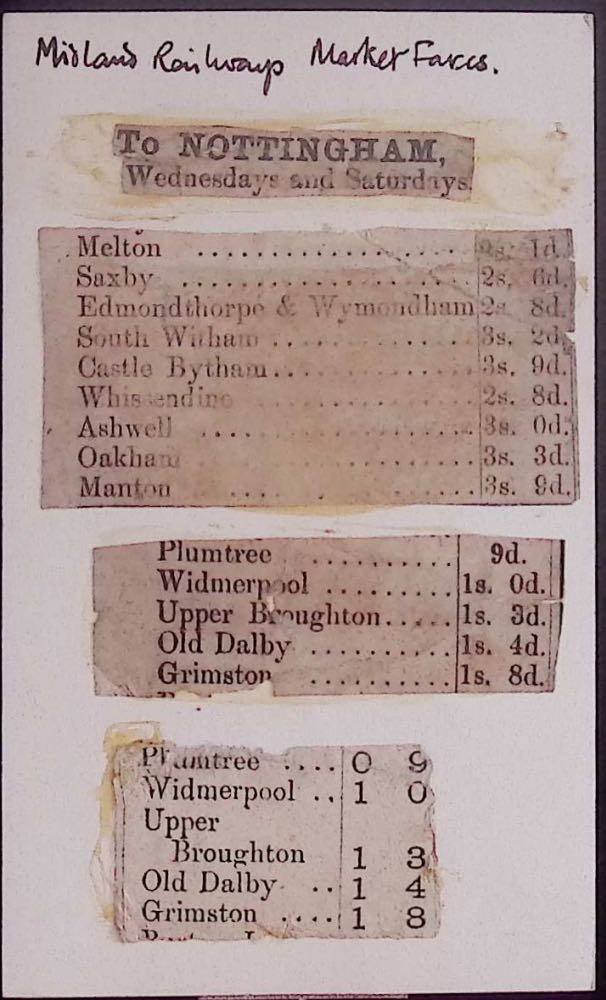 Midland Railways Market Fares.
To NOTTINGHAM,
Wednesdays and Saturdays.
Melton .................. 2s. 1d.
Saxby .................. 2s. 6d.
Edmondthorpe & Wymondham 2s 8d.
South Witham ............. 3s. 2d.
Castle Bytham .............. 3s. 9d.
Whissendine ............ 2s. 8d.
Ashwell ................. 3s. 0d.
Oakham ................ 3s. 3d.
Manton .............. 3s. 9d.
Plumtree .......... 9d.
Widmerpool ......... 1s. 0d.
Upper Broughton..... 1s. 3d.
Old Dalby .......... 1s. 4d.
Grimston .......... 1s. 8d.
Plumtree .... 0 9
Widmerpool .. 1 0
Upper
Broughton 1 3
Old Dalby .. 1 4
Grimston .... 1 8